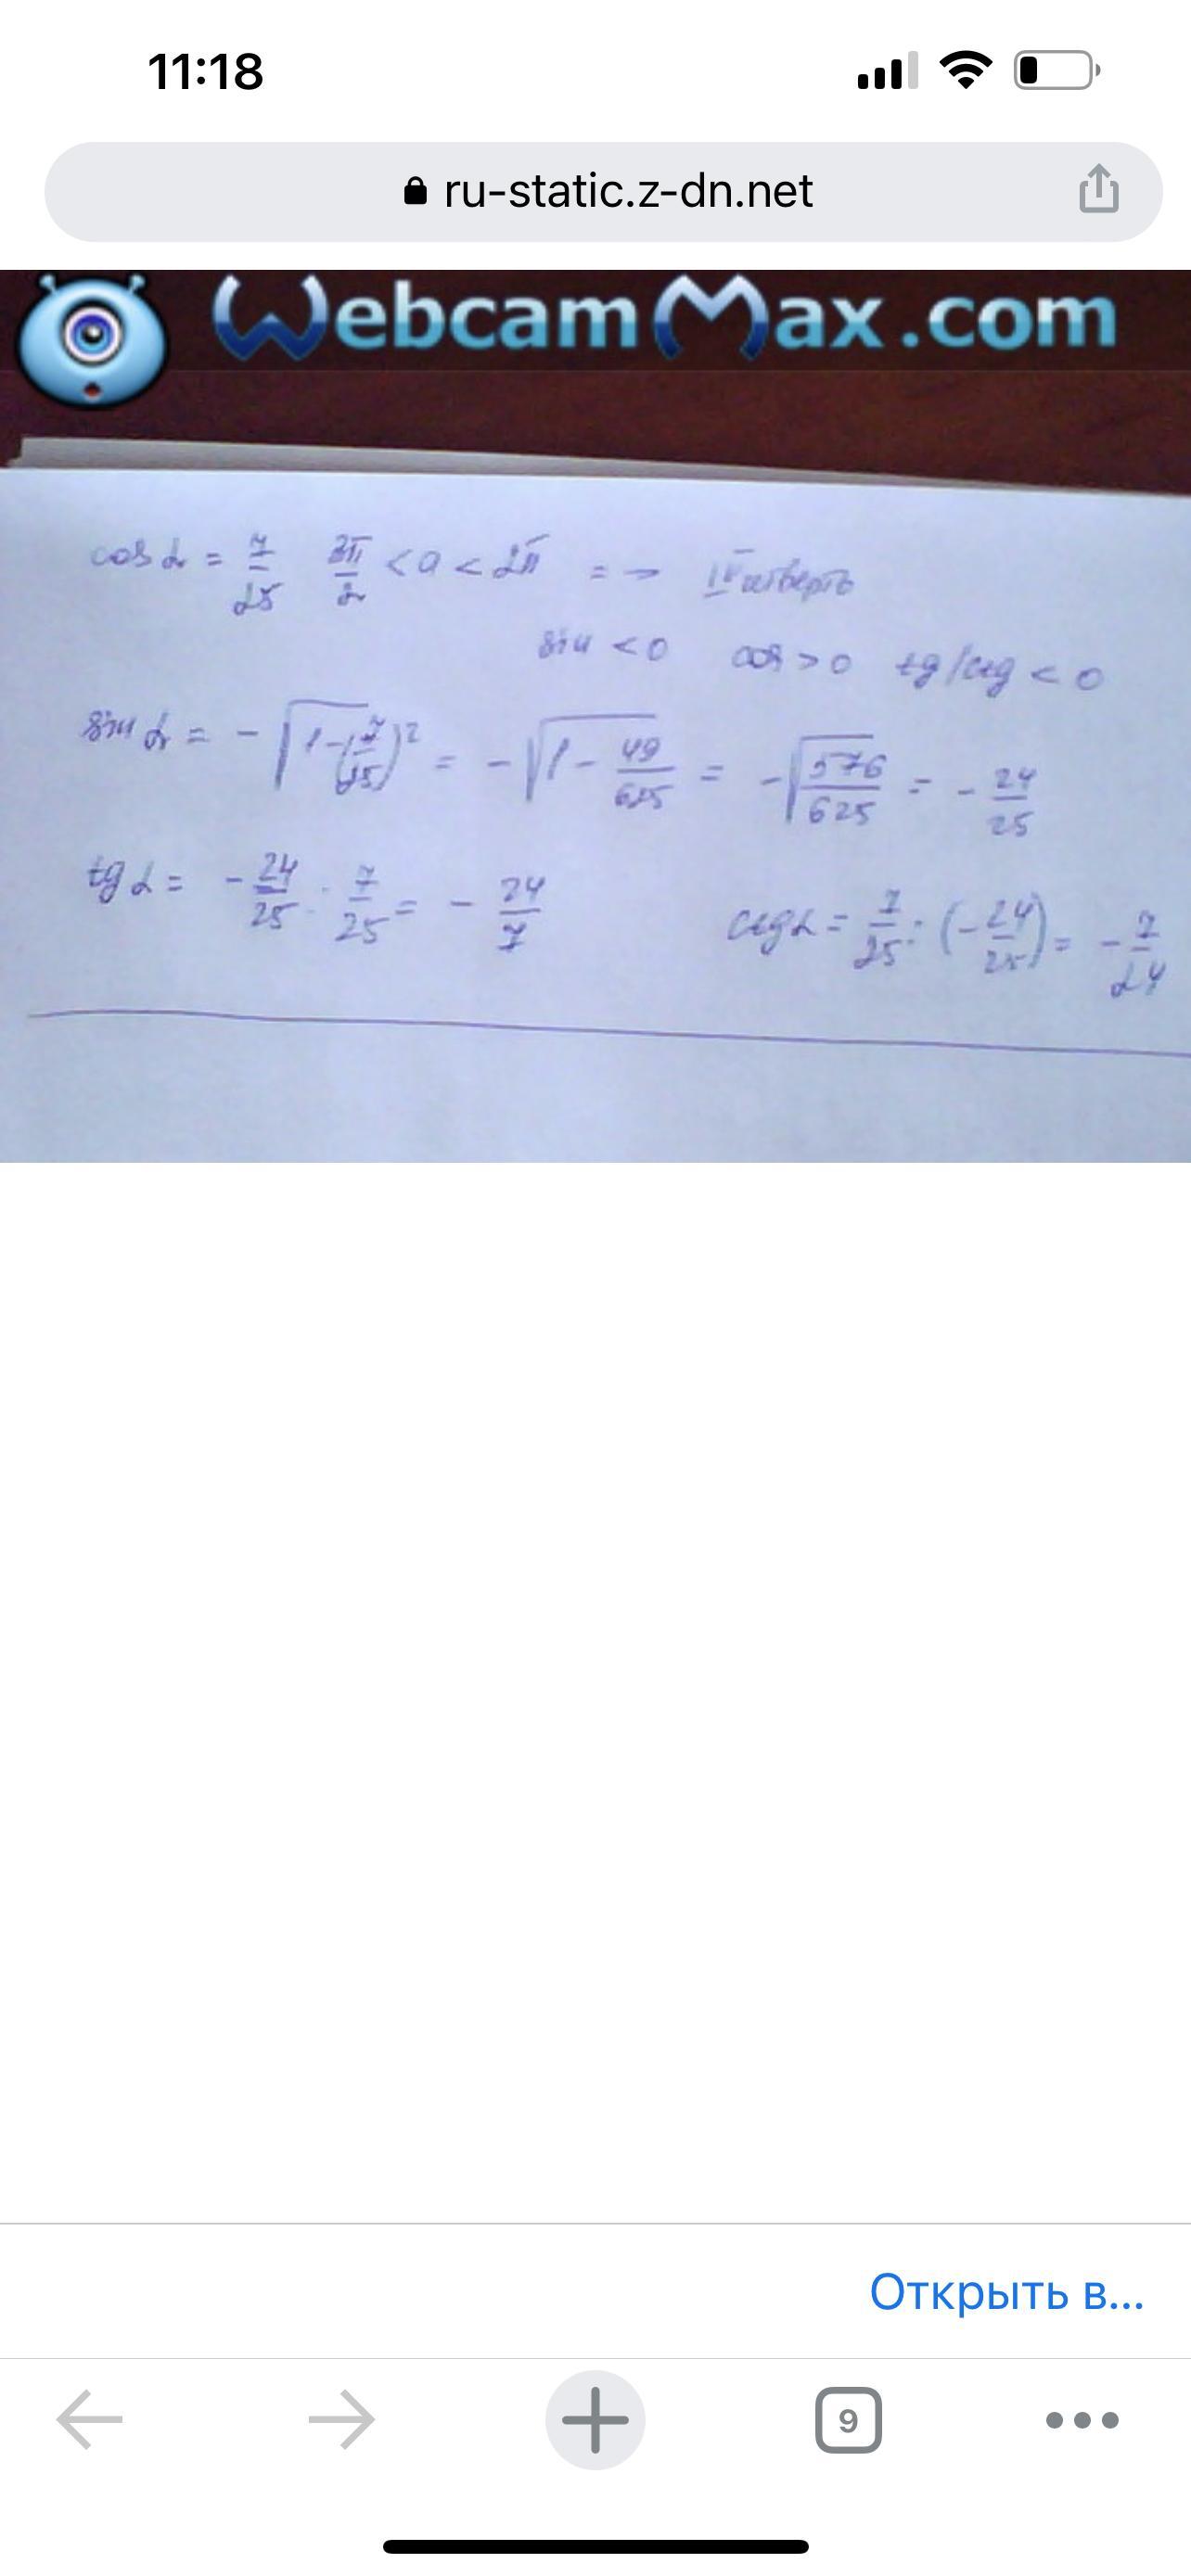 11:18
ru-static.z-dn.net
WebcamMax.com
cos α = 7/25 3π/2 < a < 2π => IV четверть
sin < 0 cos > 0 tg/ctg < 0
sin α = -√(1-(7/25)²) = -√(1 - 49/625) = -√(576/625) = - 24/25
tg α = - 24/25 : 7/25 = - 24/7 ctg α = 7/25 : (- 24/25) = - 7/24
Открыть в...
9